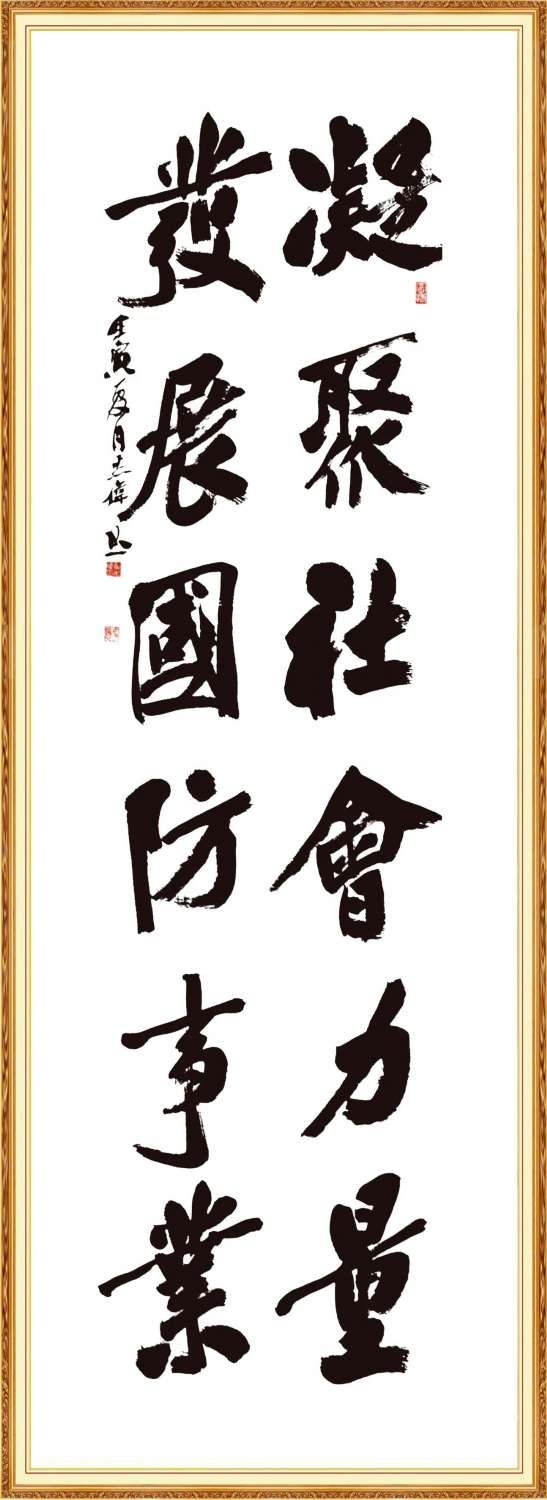 凝聚社會力量
發展國防事業
壬寅夏月志偉書